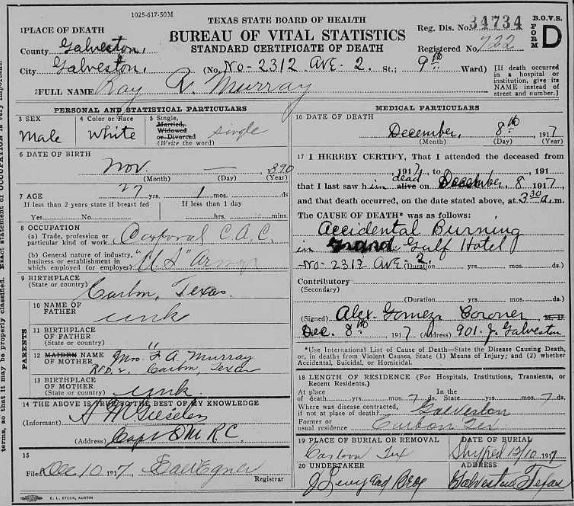 1025-617-50M
TEXAS STATE BOARD OF HEALTH
BUREAU OF VITAL STATISTICS
STANDARD CERTIFICATE OF DEATH
Reg. Dis. No. 34734
Registered No. 722
B.O.V.S.
FORM D
1 PLACE OF DEATH
County Galveston,
City Galveston, (No. No-2312 Ave. 2. St.; 9th Ward)
[If death occurred in a hospital or institution, give its NAME instead of street and number.]
2 FULL NAME Ray V. Murray
PERSONAL AND STATISTICAL PARTICULARS
3 SEX Male
4 Color or Race White
5 Single, Married, Widowed or Divorced (Write the word) single
6 DATE OF BIRTH
Nov. — 
(Month) (Day) (Year)
7 AGE
27 yrs. 1 mos. ds
If less than 2 years state if breast fed If less than 1 day
Yes No hrs. or min.
8 OCCUPATION
(a) Trade, profession or particular kind of work Corporal C.A.C.
(b) General nature of industry, business or establishment in which employed (or employer) "U S" Army
9 BIRTHPLACE
(State or country) Carbon, Texas.
PARENTS
10 NAME OF FATHER unk
11 BIRTHPLACE OF FATHER
(State or country) "
12 MAIDEN NAME OF MOTHER Mrs. F A Murray
Carbon, Texas
13 BIRTHPLACE OF MOTHER
(State or country) unk
14 THE ABOVE IS TRUE TO THE BEST OF MY KNOWLEDGE
(Informant)
(Address) Capt
15
Filed Dec 10 1917
Registrar
MEDICAL PARTICULARS
16 DATE OF DEATH
December, 8th, 1917
(Month) (Day) (Year)
17 I HEREBY CERTIFY, That I attended the deceased from
1917 to 191
that I last saw him dead alive on December 8 1917
and that death occurred, on the date stated above, at 3:30 a.m.
The CAUSE OF DEATH* was as follows:
Accidental Burning
in Grand Gulf Hotel
No- 2312 Ave 2. (Duration yrs. mos. ds.
Contributory
(Secondary)
(Duration yrs. mos. ds.
(Signed) Alex Gomez Coroner M. D
Dec. 8th 1917 (Address) 901-J. Galveston
*Use International List of Cause of Death—State the Disease Causing Death, or, in deaths from Violent Causes, State (1) Means of Injury; and (2) whether Accidental, Suicidal, or Homicidal.
18 LENGTH OF RESIDENCE (For Hospitals, Institutions, Transients, or Recent Residents.)
At place of death yrs. mos. 7 ds. In the State yrs. mos. 7 ds.
Where was disease contracted, if not at place of death? Galveston
Former or usual residence Carbon Tex
19 PLACE OF BURIAL OR REMOVAL Carbon Tex
DATE OF BURIAL Shipped 12/10 1917
20 UNDERTAKER J Levy and Bro
ADDRESS Galveston Texas